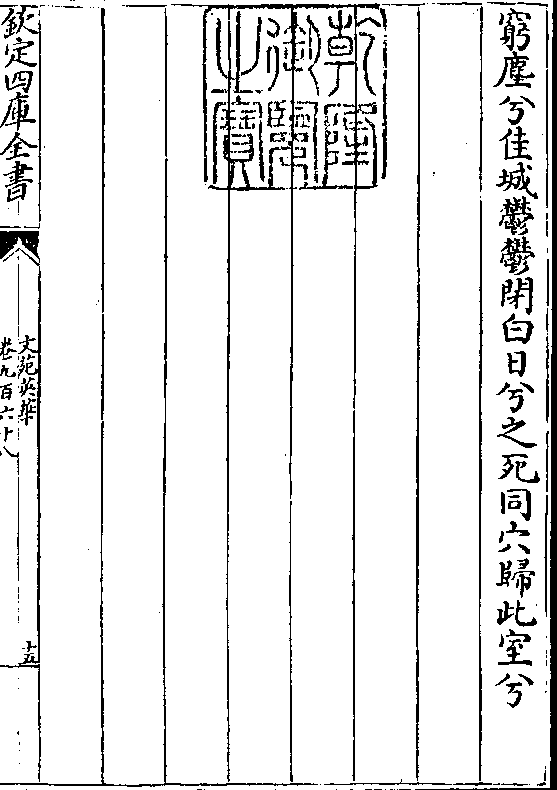 窮塵兮佳城鬱鬱閉白日兮之死同穴歸此室兮
乾隆御覽之寶
欽定四庫全書
文苑英華
卷九百六十八
十五